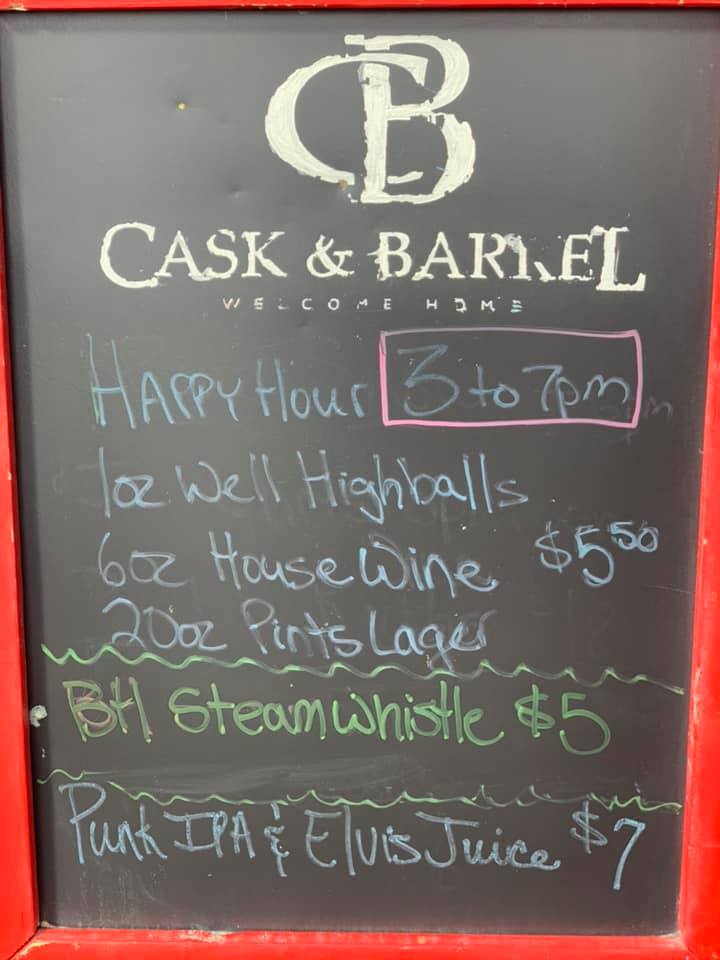 CB
CASK & BARREL
WELCOME HOME
HAPPY Hour 3 to 7pm
1oz Well Highballs
6oz House Wine $5.50
20oz Pints Lager
Btl Steamwhistle $5
Punk IPA & Elvis Juice $7